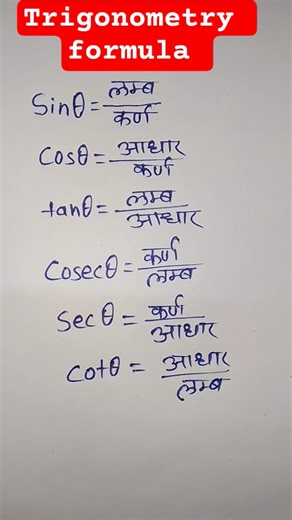 Trigonometry
formula
Sinθ = लम्ब/कर्ण
Cosθ = आधार/कर्ण
tanθ = लम्ब/आधार
Cosecθ = कर्ण/लम्ब
Secθ = कर्ण/आधार
Cotθ = आधार/लम्ब